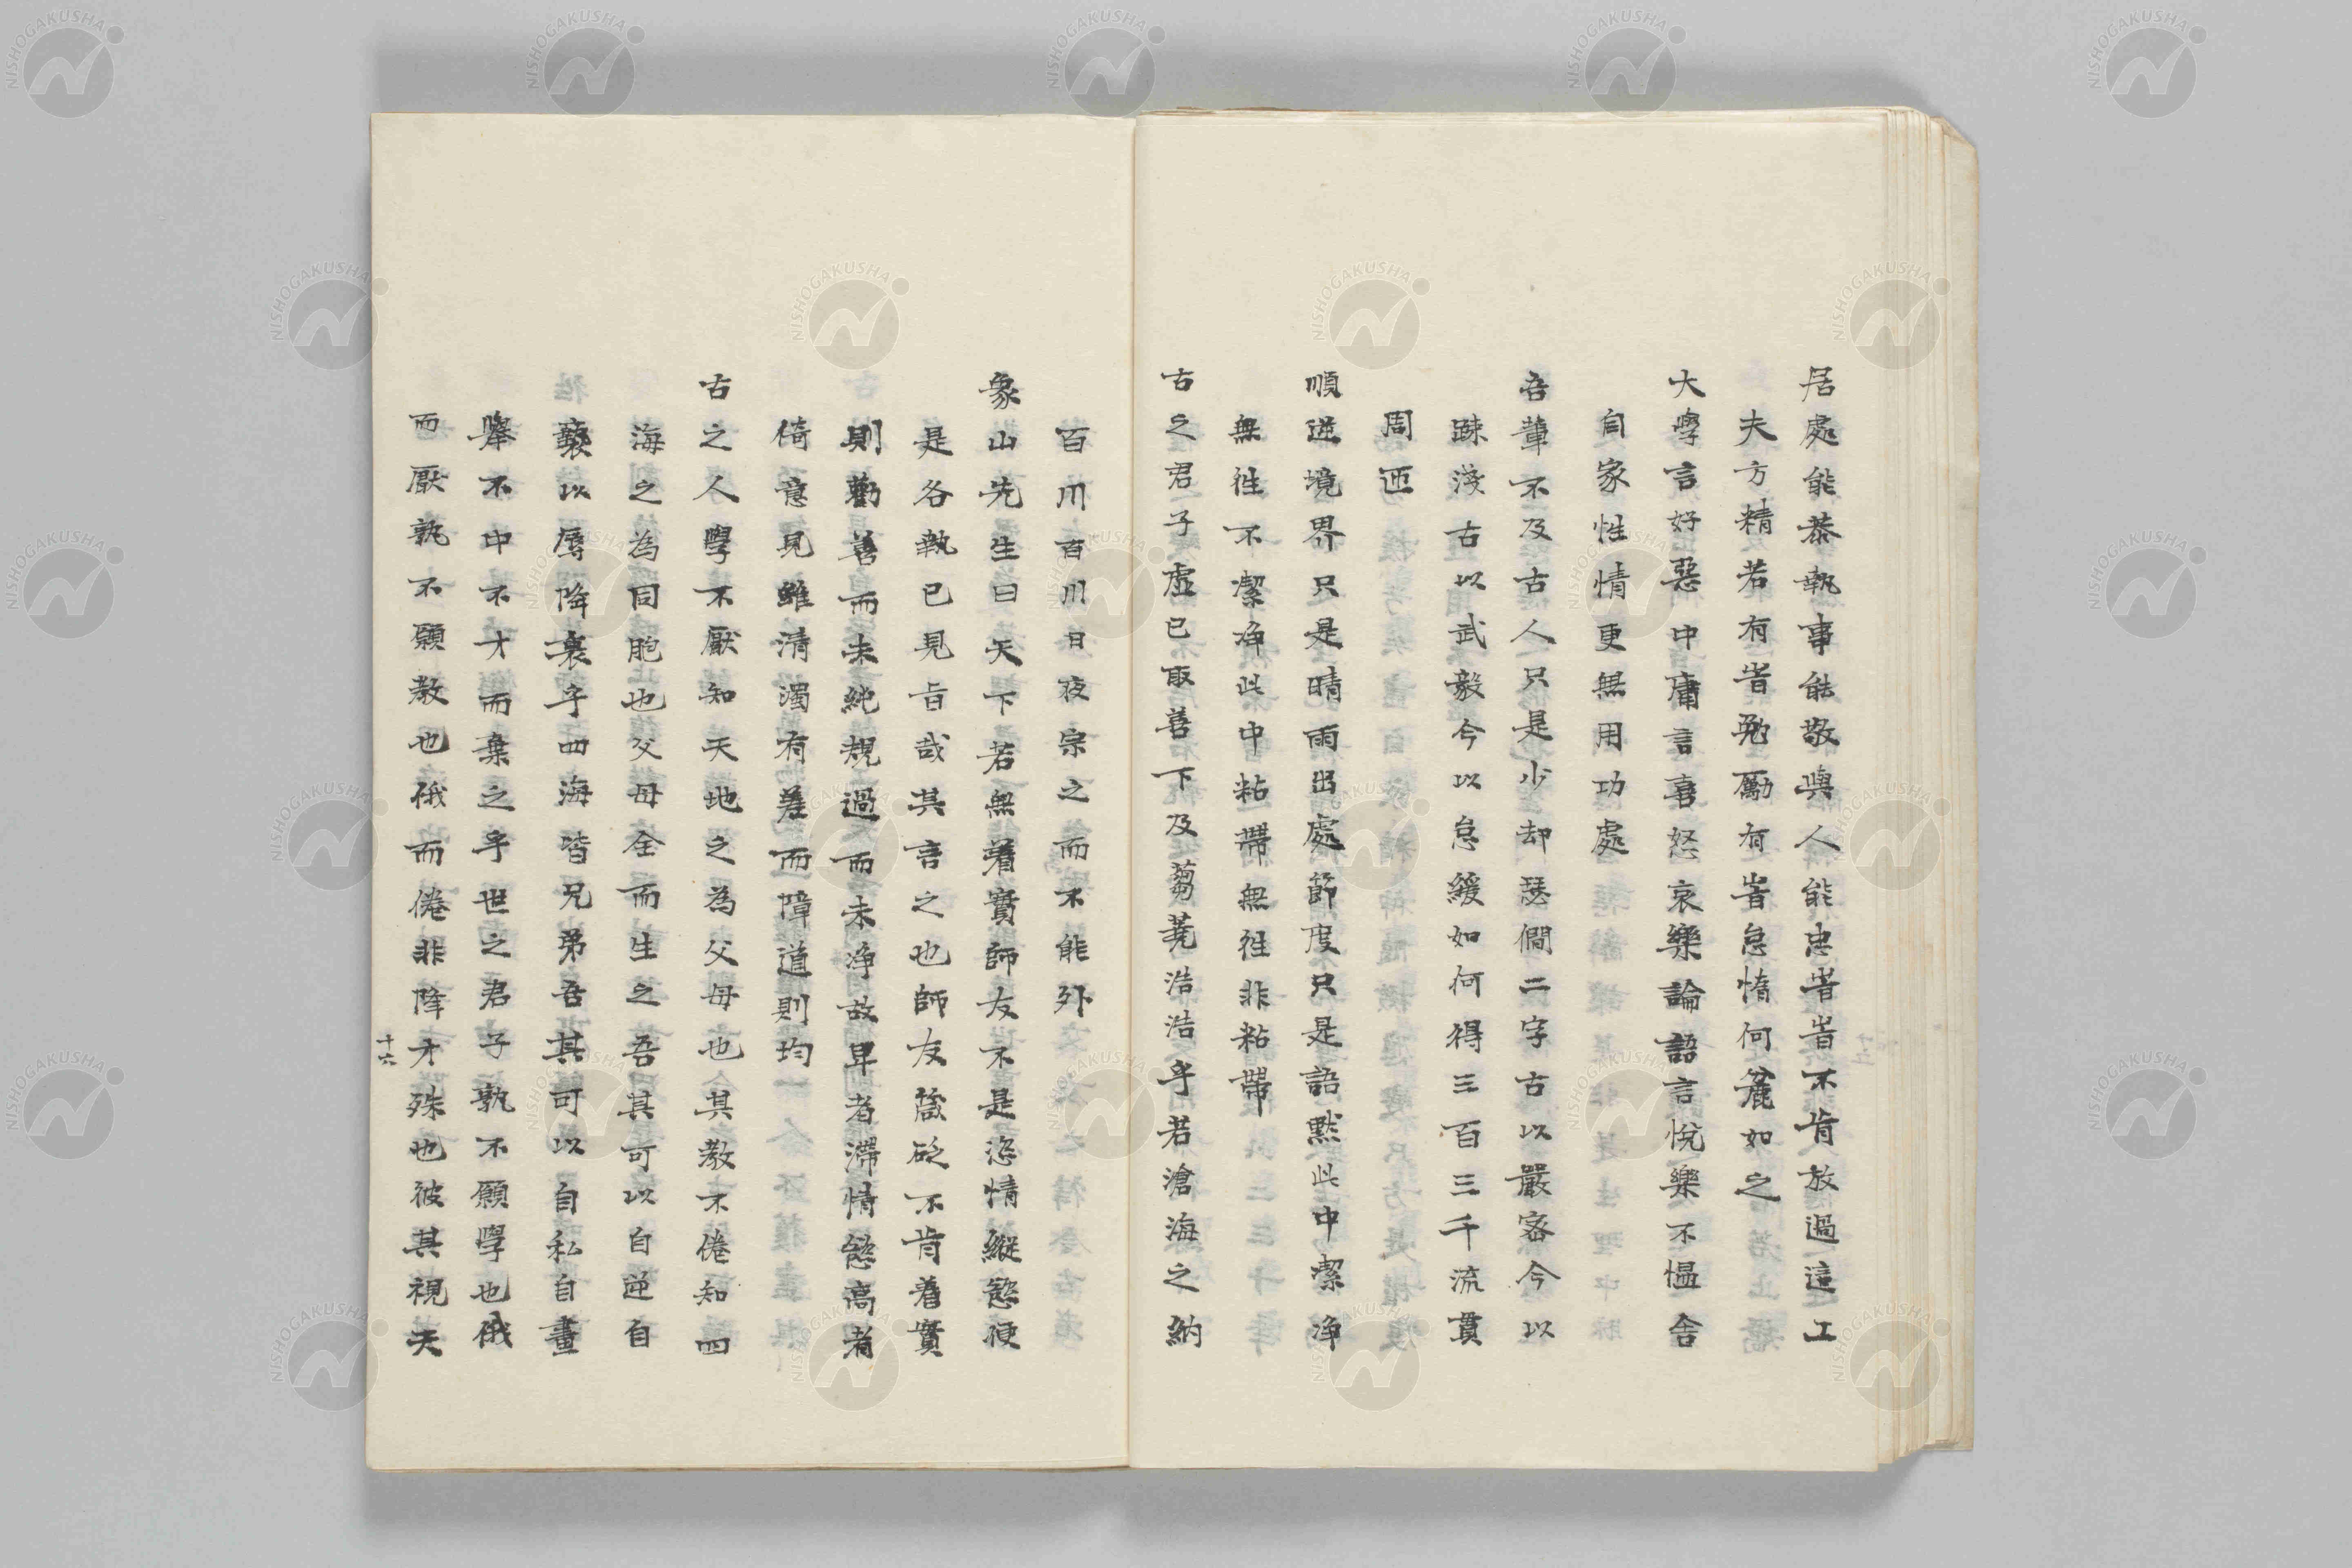 居處能恭執事能敬與人能忠者皆不肯放過這工
夫方精若有皆勉勵有皆怠惰何麄如之
大學言好惡中庸言喜怒哀樂論語言悅樂不慍舍
自家性情更無用功處
吾輩不及古人只是少却瑟僩二字古以嚴密今以
踈淺古以武毅今以怠緩如何得三百三千流貫
周匝
順逆境界只是晴雨出處節度只是語默此中潔淨
無徃不潔淨此中粘帶無徃非粘帶
古之君子虛己取善下及蒭蕘浩浩乎若滄海之納
百川百川日夜宗之而不能外
象山先生曰天下若無着實師友不是恣情縱慾便
是各執己見旨哉其言之也師友箴砭不肯着實
則勸善而未純規過而未淨故卑者滯情慾高者
倚意見雖清濁有差而障道則均
古之人學不厭知天地之為父母也今其教不倦知四
海之為同胞也父母全而生之吾其可以自逆自
褻以辱降衷乎四海皆兄弟吾其可以自私自畫
舉不中不才而棄之乎世之君子孰不願學也俄
而厭孰不願教也俄而倦非降才殊也彼其視天
十六
NISHOGAKUSHA